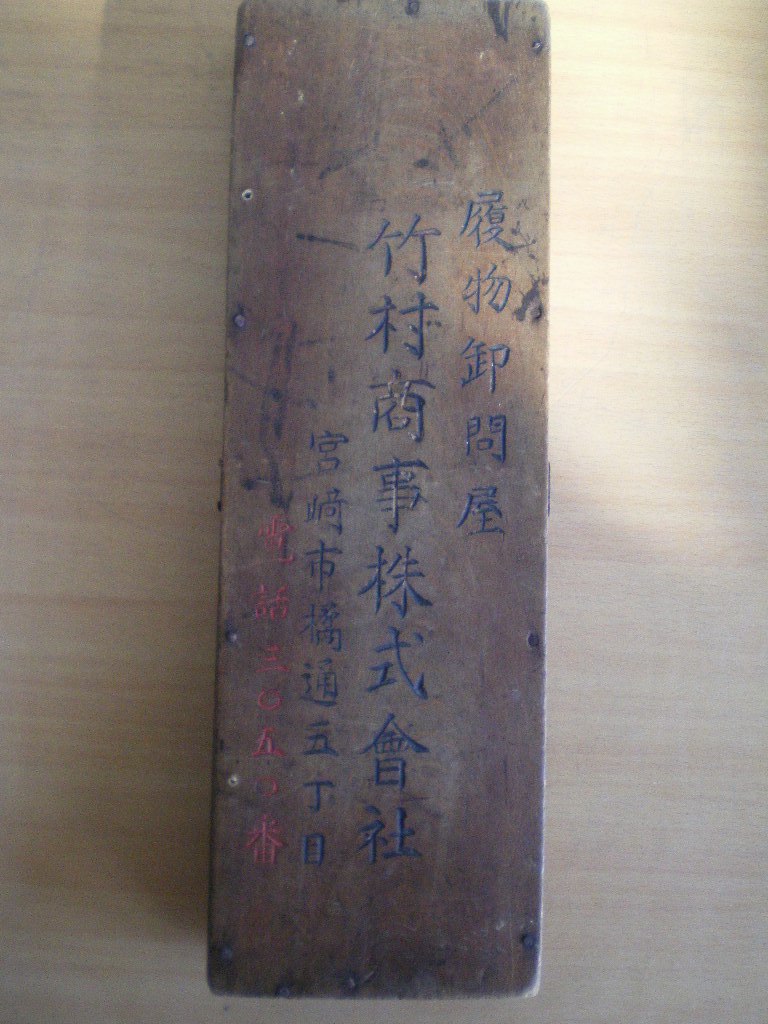 履物卸問屋
竹村商事株式會社
宮崎市橘通五丁目
電話三〇五〇番